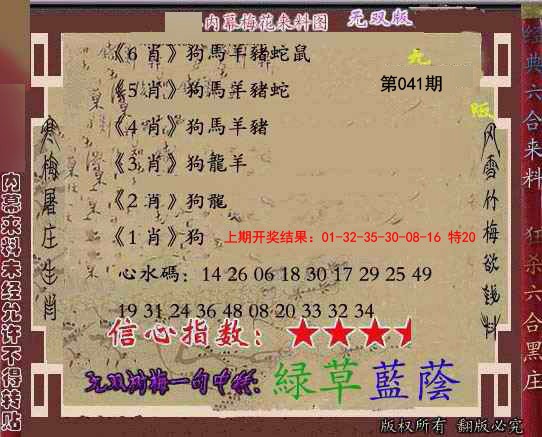 内幕梅花来料图 无双版
《6 肖》狗馬羊豬蛇鼠
《5 肖》狗馬羊豬蛇
第041期
《4 肖》狗馬羊豬
《3 肖》狗龍羊
《2 肖》狗龍
《1 肖》狗
上期开奖结果：01-32-35-30-08-16 特20
心水碼：14 26 06 18 30 17 29 25 49
19 31 24 36 48 08 20 33 32 34
信心指数：
无双狗梅一句中特：綠草藍蔭
版权所有 翻版必究
寒梅屠庄生肖
风雪竹梅欲钱料
内幕来料未经允许不得转贴
经典六合来料
狂杀六合黑庄